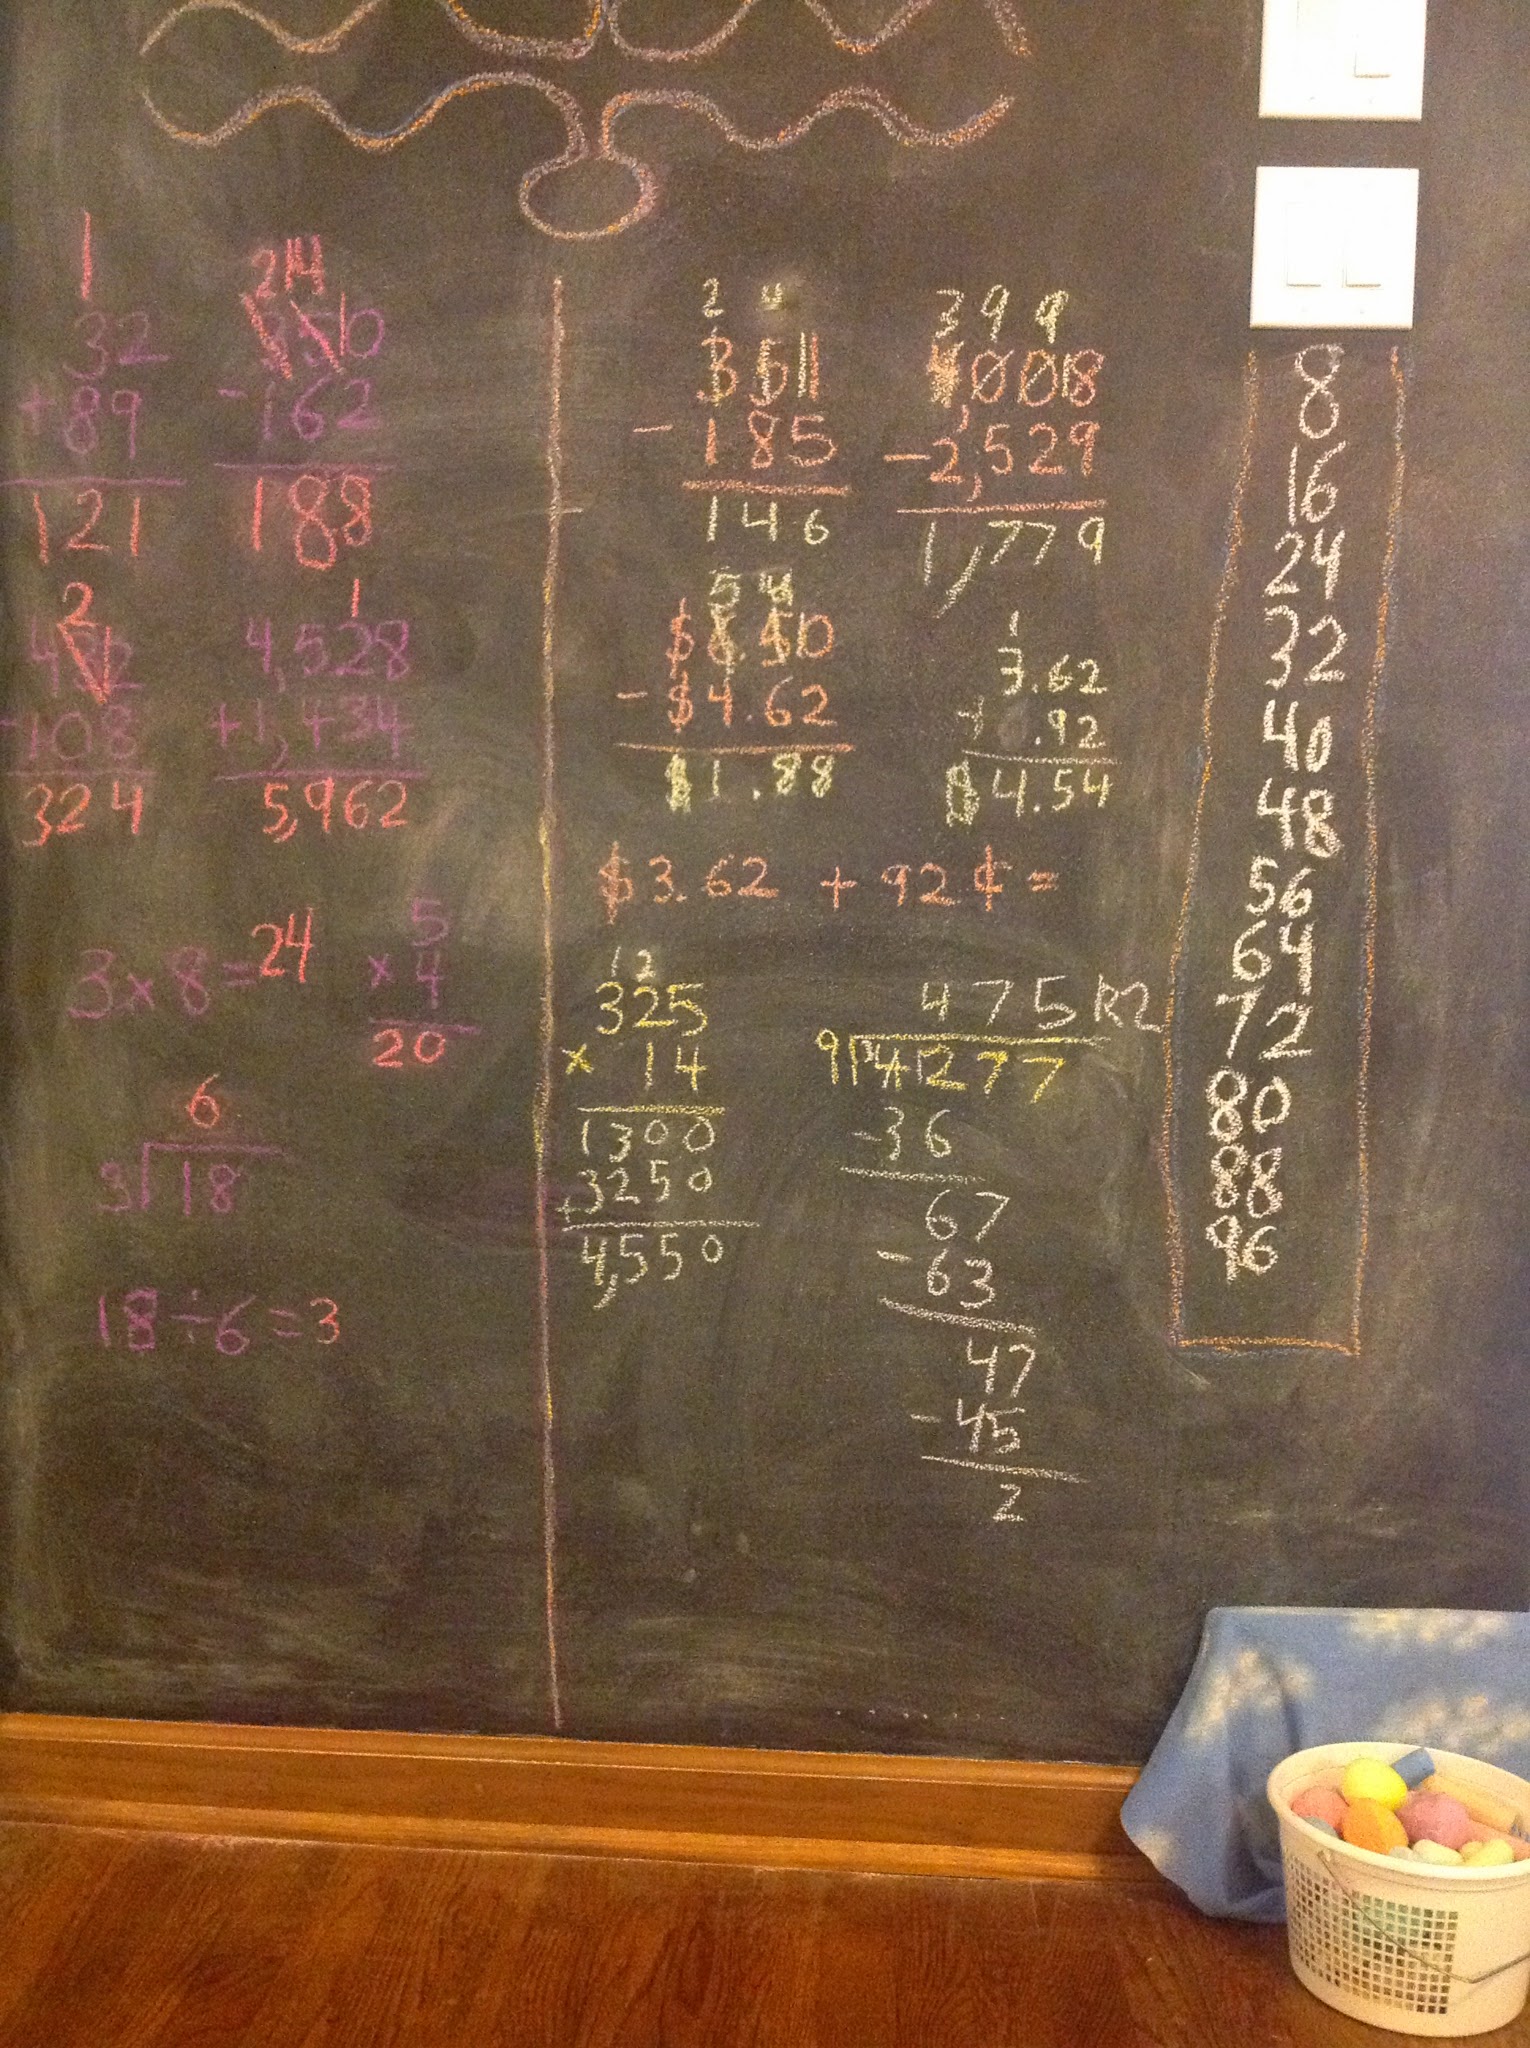 1
32
+ 89
121
2 14
3510
- 162
188
2
- 108
324
1
4,528
+1,434
5,962
3 x 8 = 24
5
x 4
20
6
3 18
18 ÷ 6 = 3
2
- 185
146
3 9 9
4,0018
- 2,529
1,779
5 14
$6.510
- $4.62
$1.88
1
3.62
+ .92
$4.54
$3.62 + 92¢ =
1 2
325
x 14
1300
+ 3250
4,550
475 R2
9 4277
- 36
67
- 63
47
- 45
2
8
16
24
32
40
48
56
64
72
80
88
96